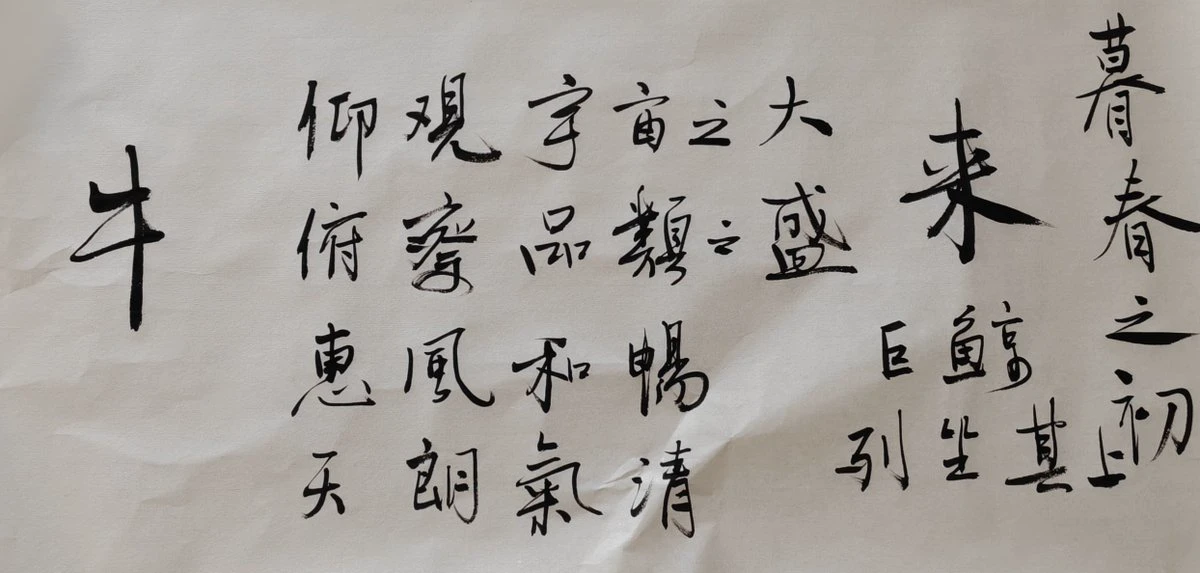 牛
仰观宇宙之大
俯察品類之盛
惠風和暢
天朗氣清
来
巨鲸
列坐其上
暮春之初